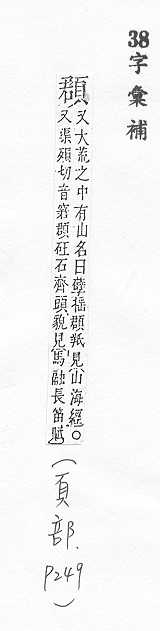 38字彙補
頵
又大荒之中有山名曰孽搖頵羝見山海經○
又渠殞切音窘頵砡石齊頭貌見馬融長笛賦
(頁部. P249)